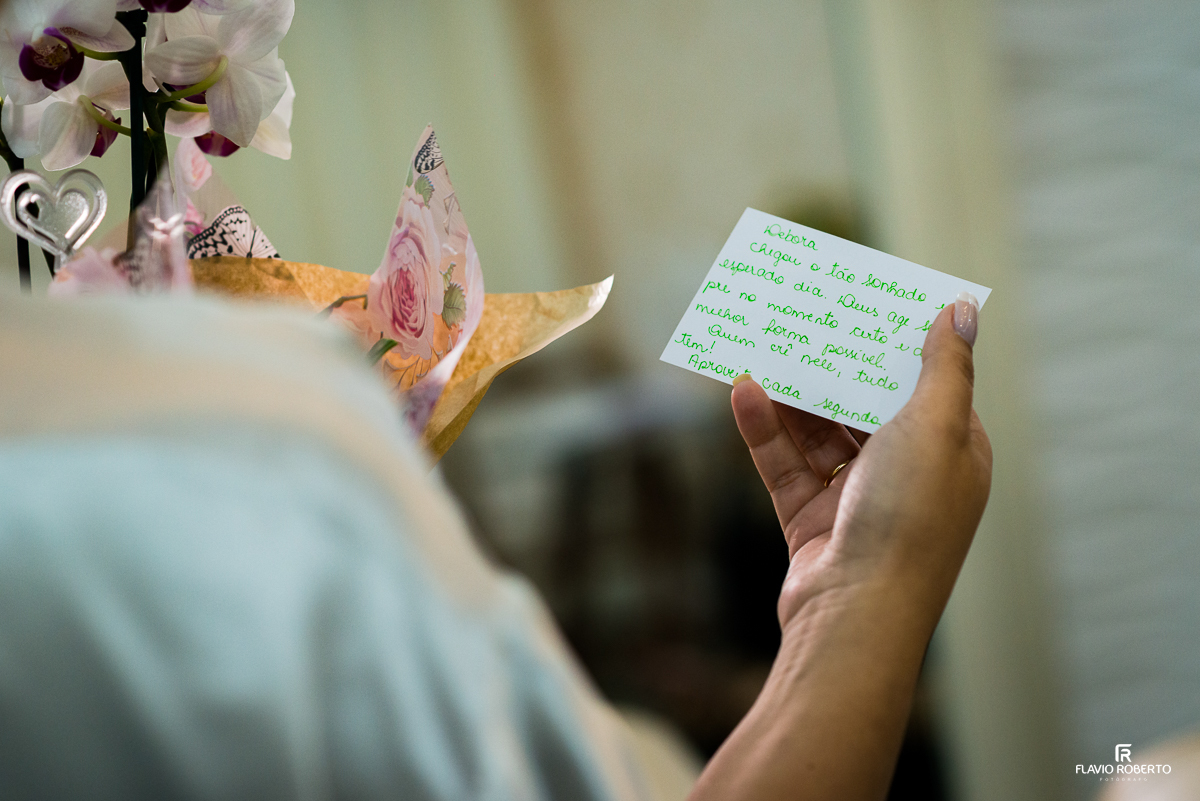 Debora
chegou o tão sonhado e
esperado dia. Deus age se
pre no momento certo e a
melhor forma possível.
Quem crê nele, tudo
tem!
Aproveit cada segundo
FR
FLAVIO ROBERTO
FOTOGRAFIA